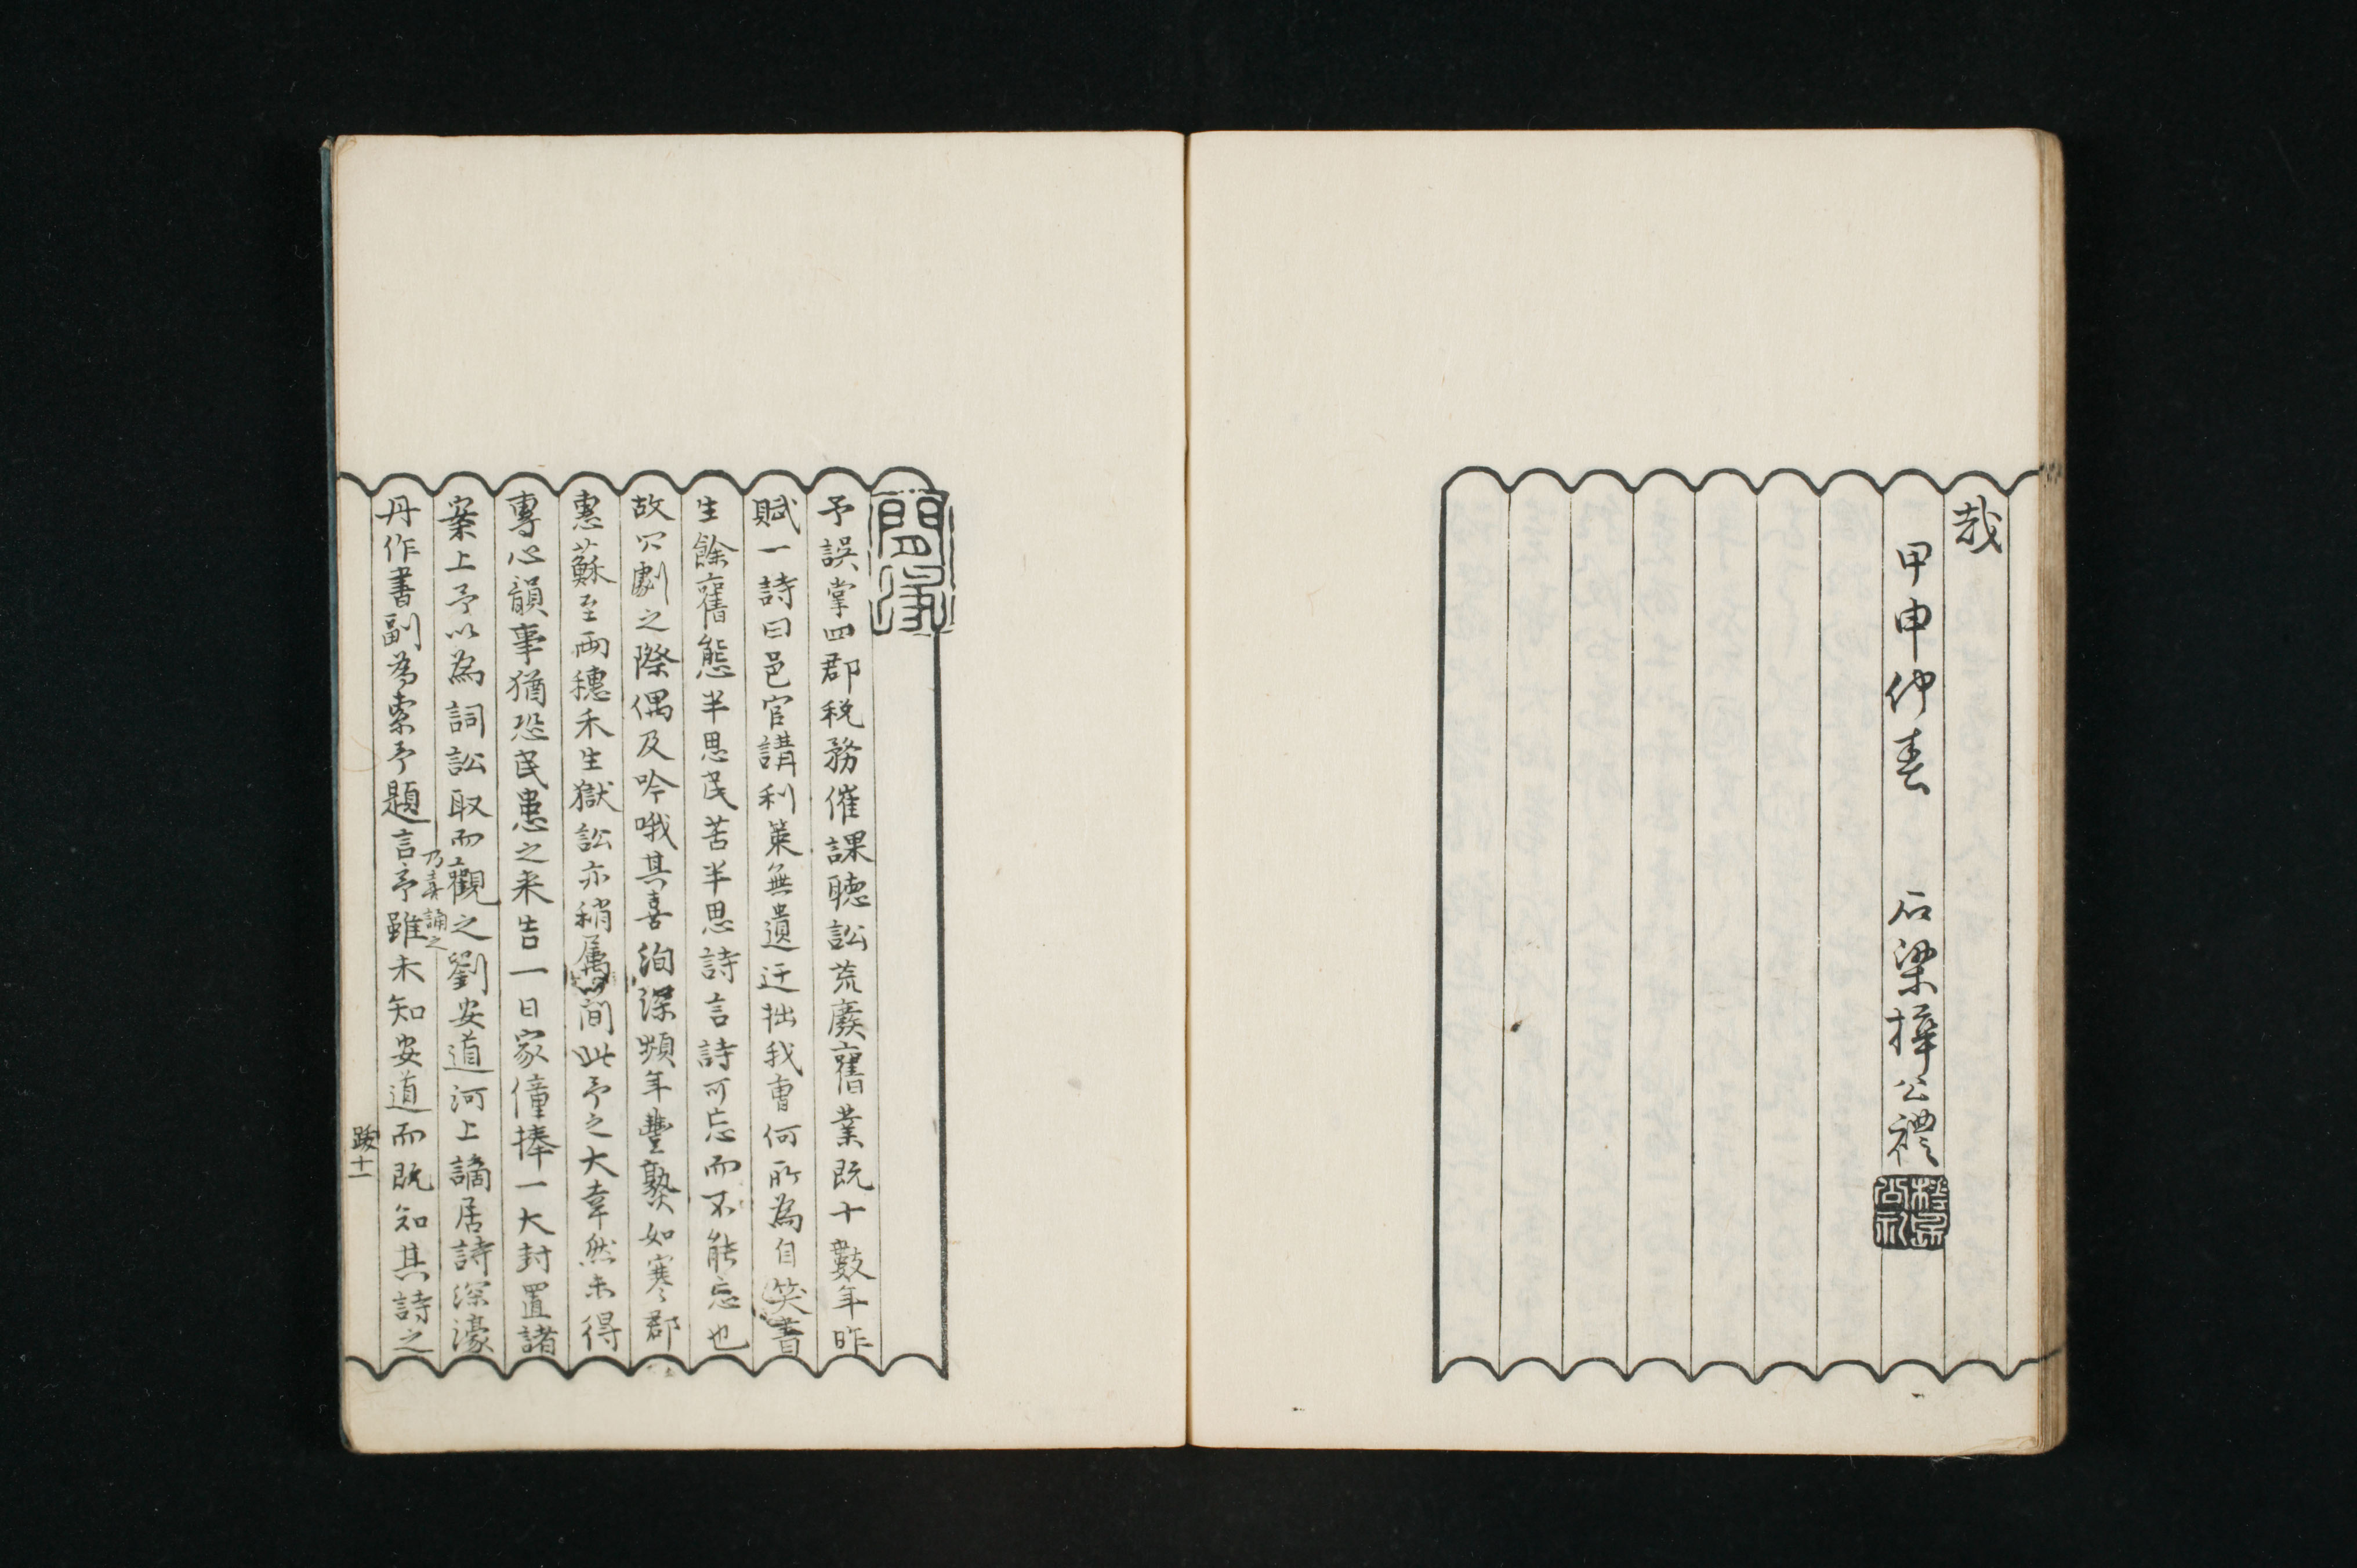 哉
甲申仲春 石梁樺公禮
予誤掌四郡稅務催課聽訟荒廢舊業既十數年昨
賦一詩曰邑官講利策無遺迂拙我曹何所為自笑書
生餘舊態半思民苦半思詩言詩可忘而不能忘也
故冗劇之際偶及吟哦其喜洵深頻年豐熟如寒郡
惠蘇至兩穗禾生獄訟亦稍属間此予之大幸然未得
專心韻事猶恐民患之来告一日家僮捧一大封置諸
案上予以為詞訟取而觀之劉安道河上謫居詩深濠
乃喜誦之
丹作書副為索予題言予雖未知安道而既知其詩之
跋十一